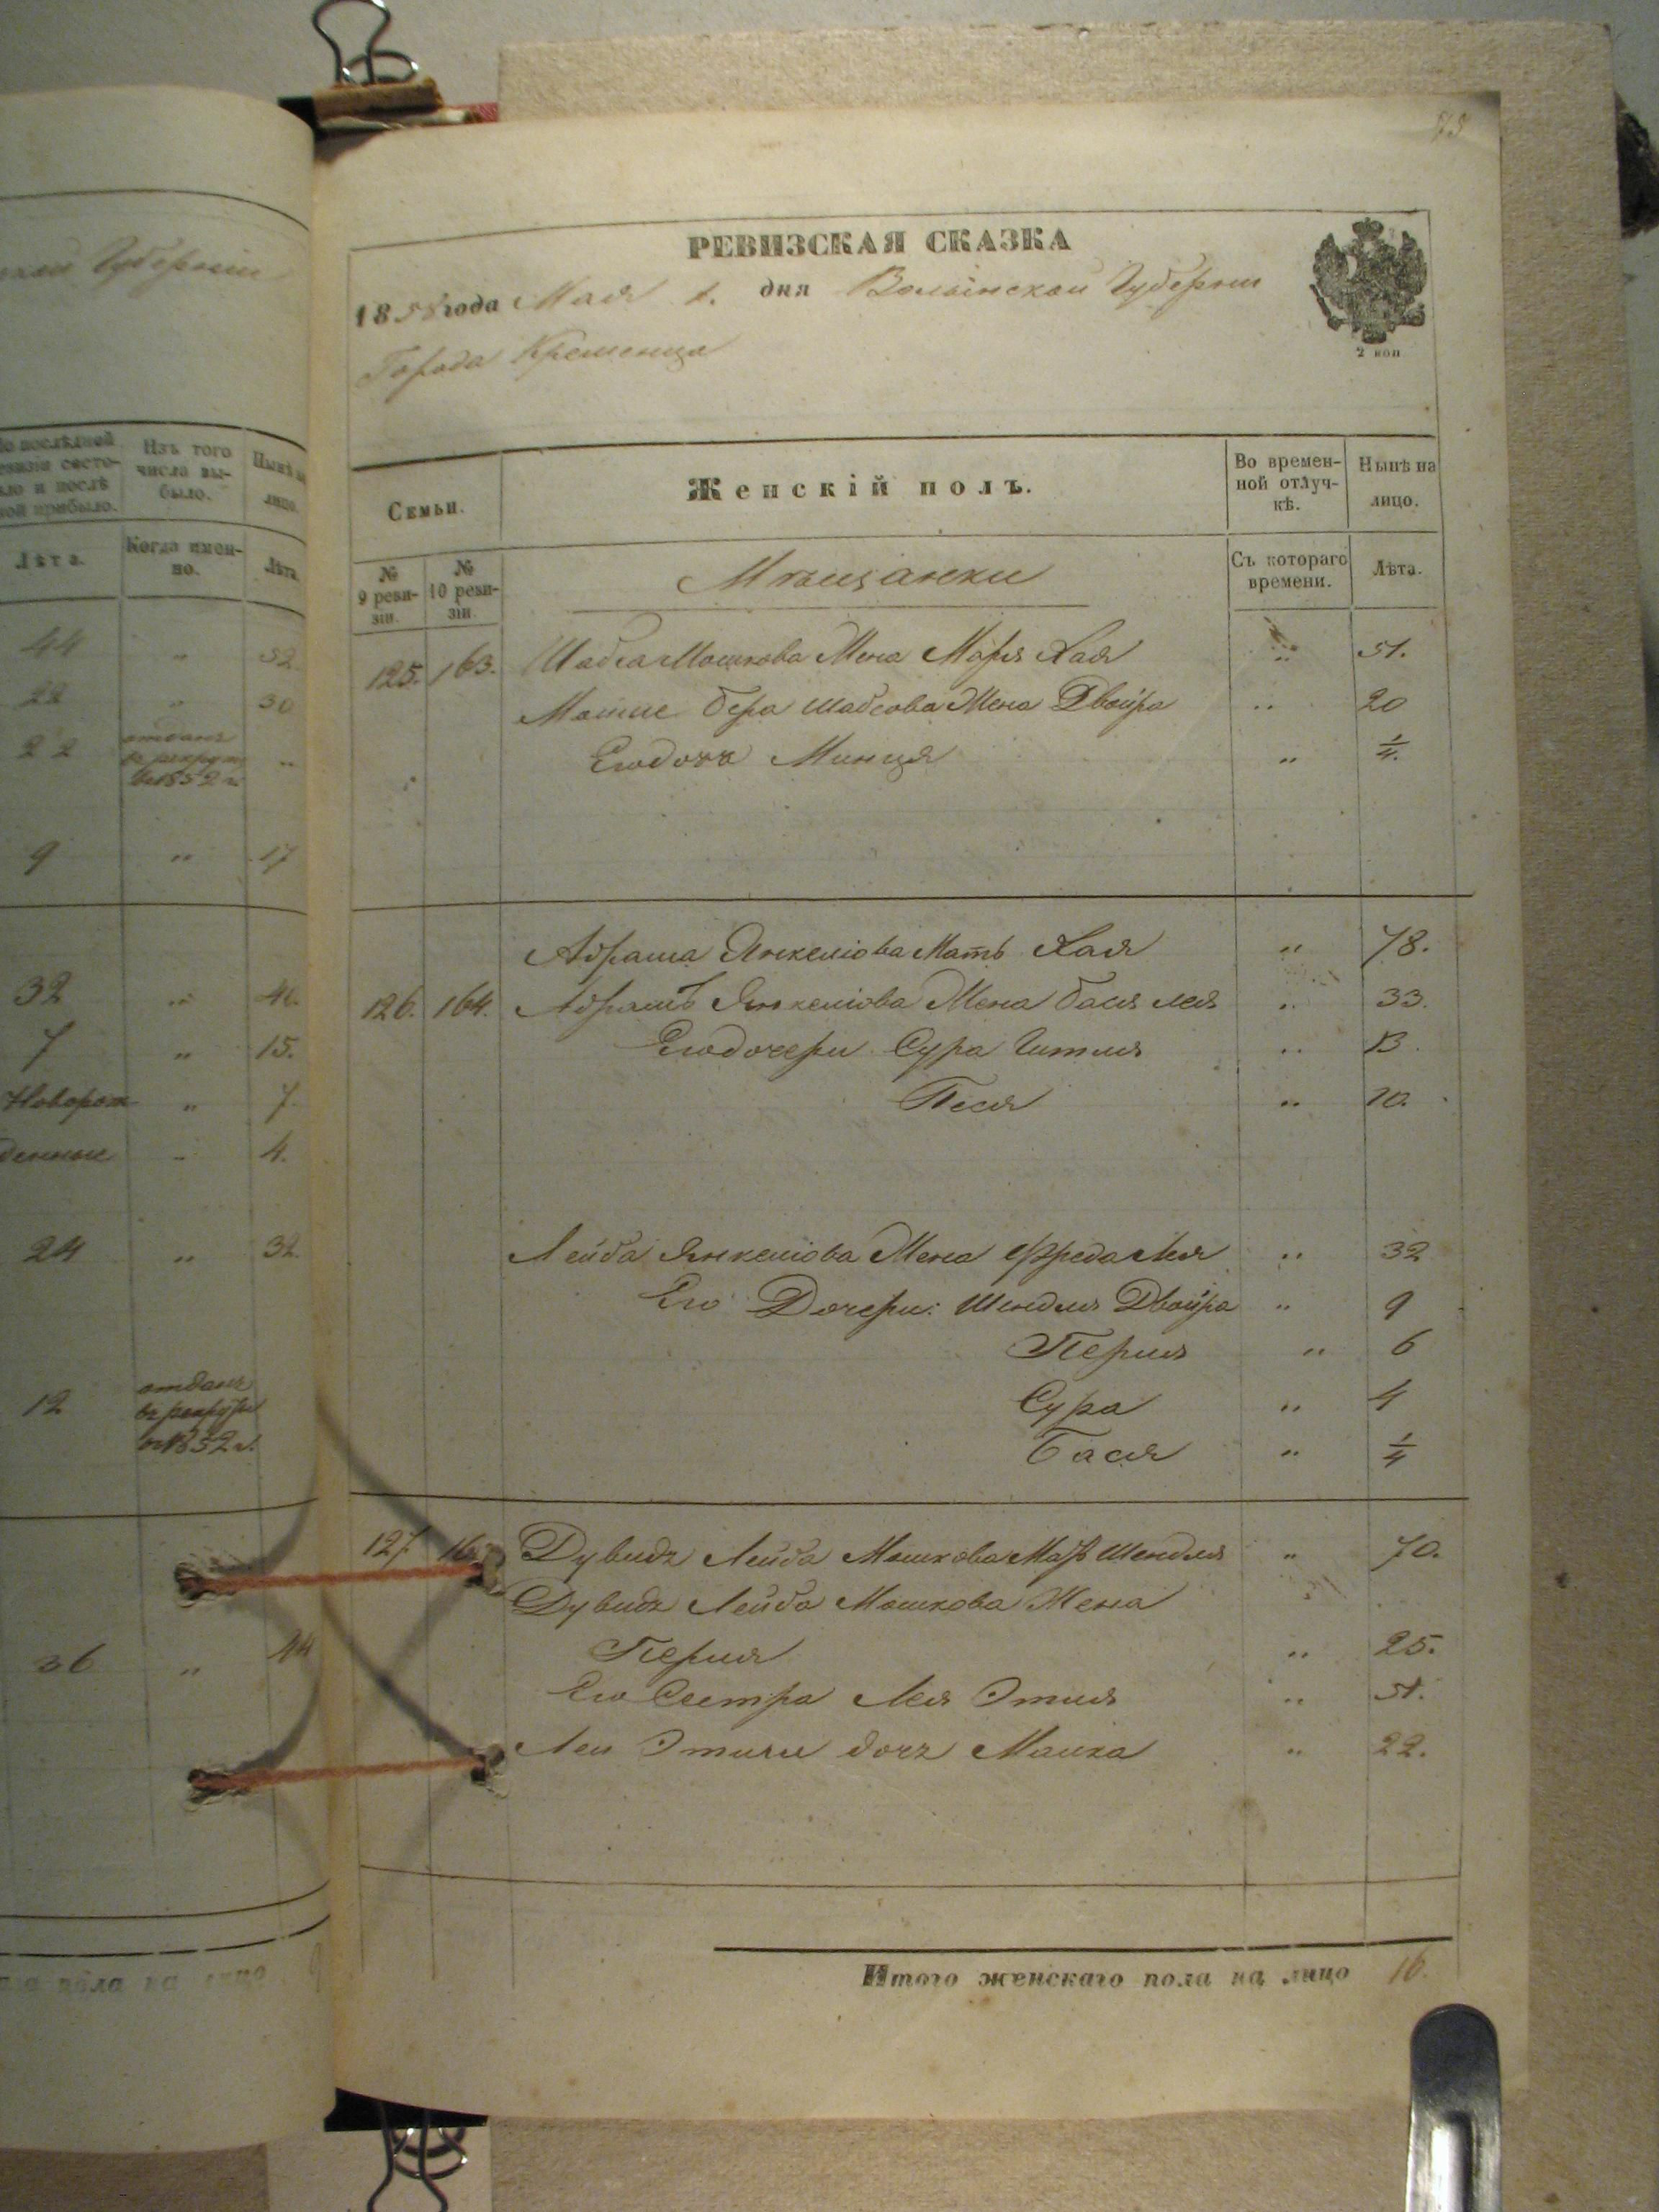 Губерніи
По послѣдной ревизіи состояло и послѣ ной прибыло.
Изъ того числа выбыло.
Нынѣ на лицо.
Лѣта.
Когда имен-но.
Лѣта.
44 „ 52.
22 „ 30
22 отданъ въ рекруты въ 1852 г. „
9 „ 17
32 „ 40.
7 „ 15.
Новорож „ 7.
денные „ 4.
24 „ 32.
12 отданъ въ рекруты въ 1852 г.
36 „ 44
пола на лицо
РЕВИЗСКАЯ СКАЗКА
1858 года Мая 1. дня Волынской Губерніи
Города Кременца
2 коп
Семьи.
Женскій полъ.
Во времен-ной отлуч-кѣ.
Нынѣ на лицо.
№ 9 реви-зіи.
№ 10 реви-зіи.
Мѣщанки
Съ котораго времени.
Лѣта.
125. 163. Шабса Мошкова Жена Маря Хая „ 51.
Мошке Бера Шабсова Жена Двойра „ 20
Его дочь Минця „ 1/4.
Абрама Янкеліова Мать Хая „ 78.
126. 164. Абрамъ Янкеліова Жена Бася Лея „ 33.
Его дочери Сура Гитля „ 13.
Песя „ 10.
Лейба Янкеліова Жена Фреда Лея „ 32
Его Дочери: Шендля Двойра „ 9
Перля „ 6
Сура „ 4
Бася „ 1/4
127. Дувидъ Лейба Мошкова Мать Шендля „ 70.
Дувидъ Лейба Мошкова Жена
Перля „ 25.
Его Сестра Лея Этля „ 51.
Леи Этли дочь Малка „ 22.
Итого женскаго пола на лицо 16.